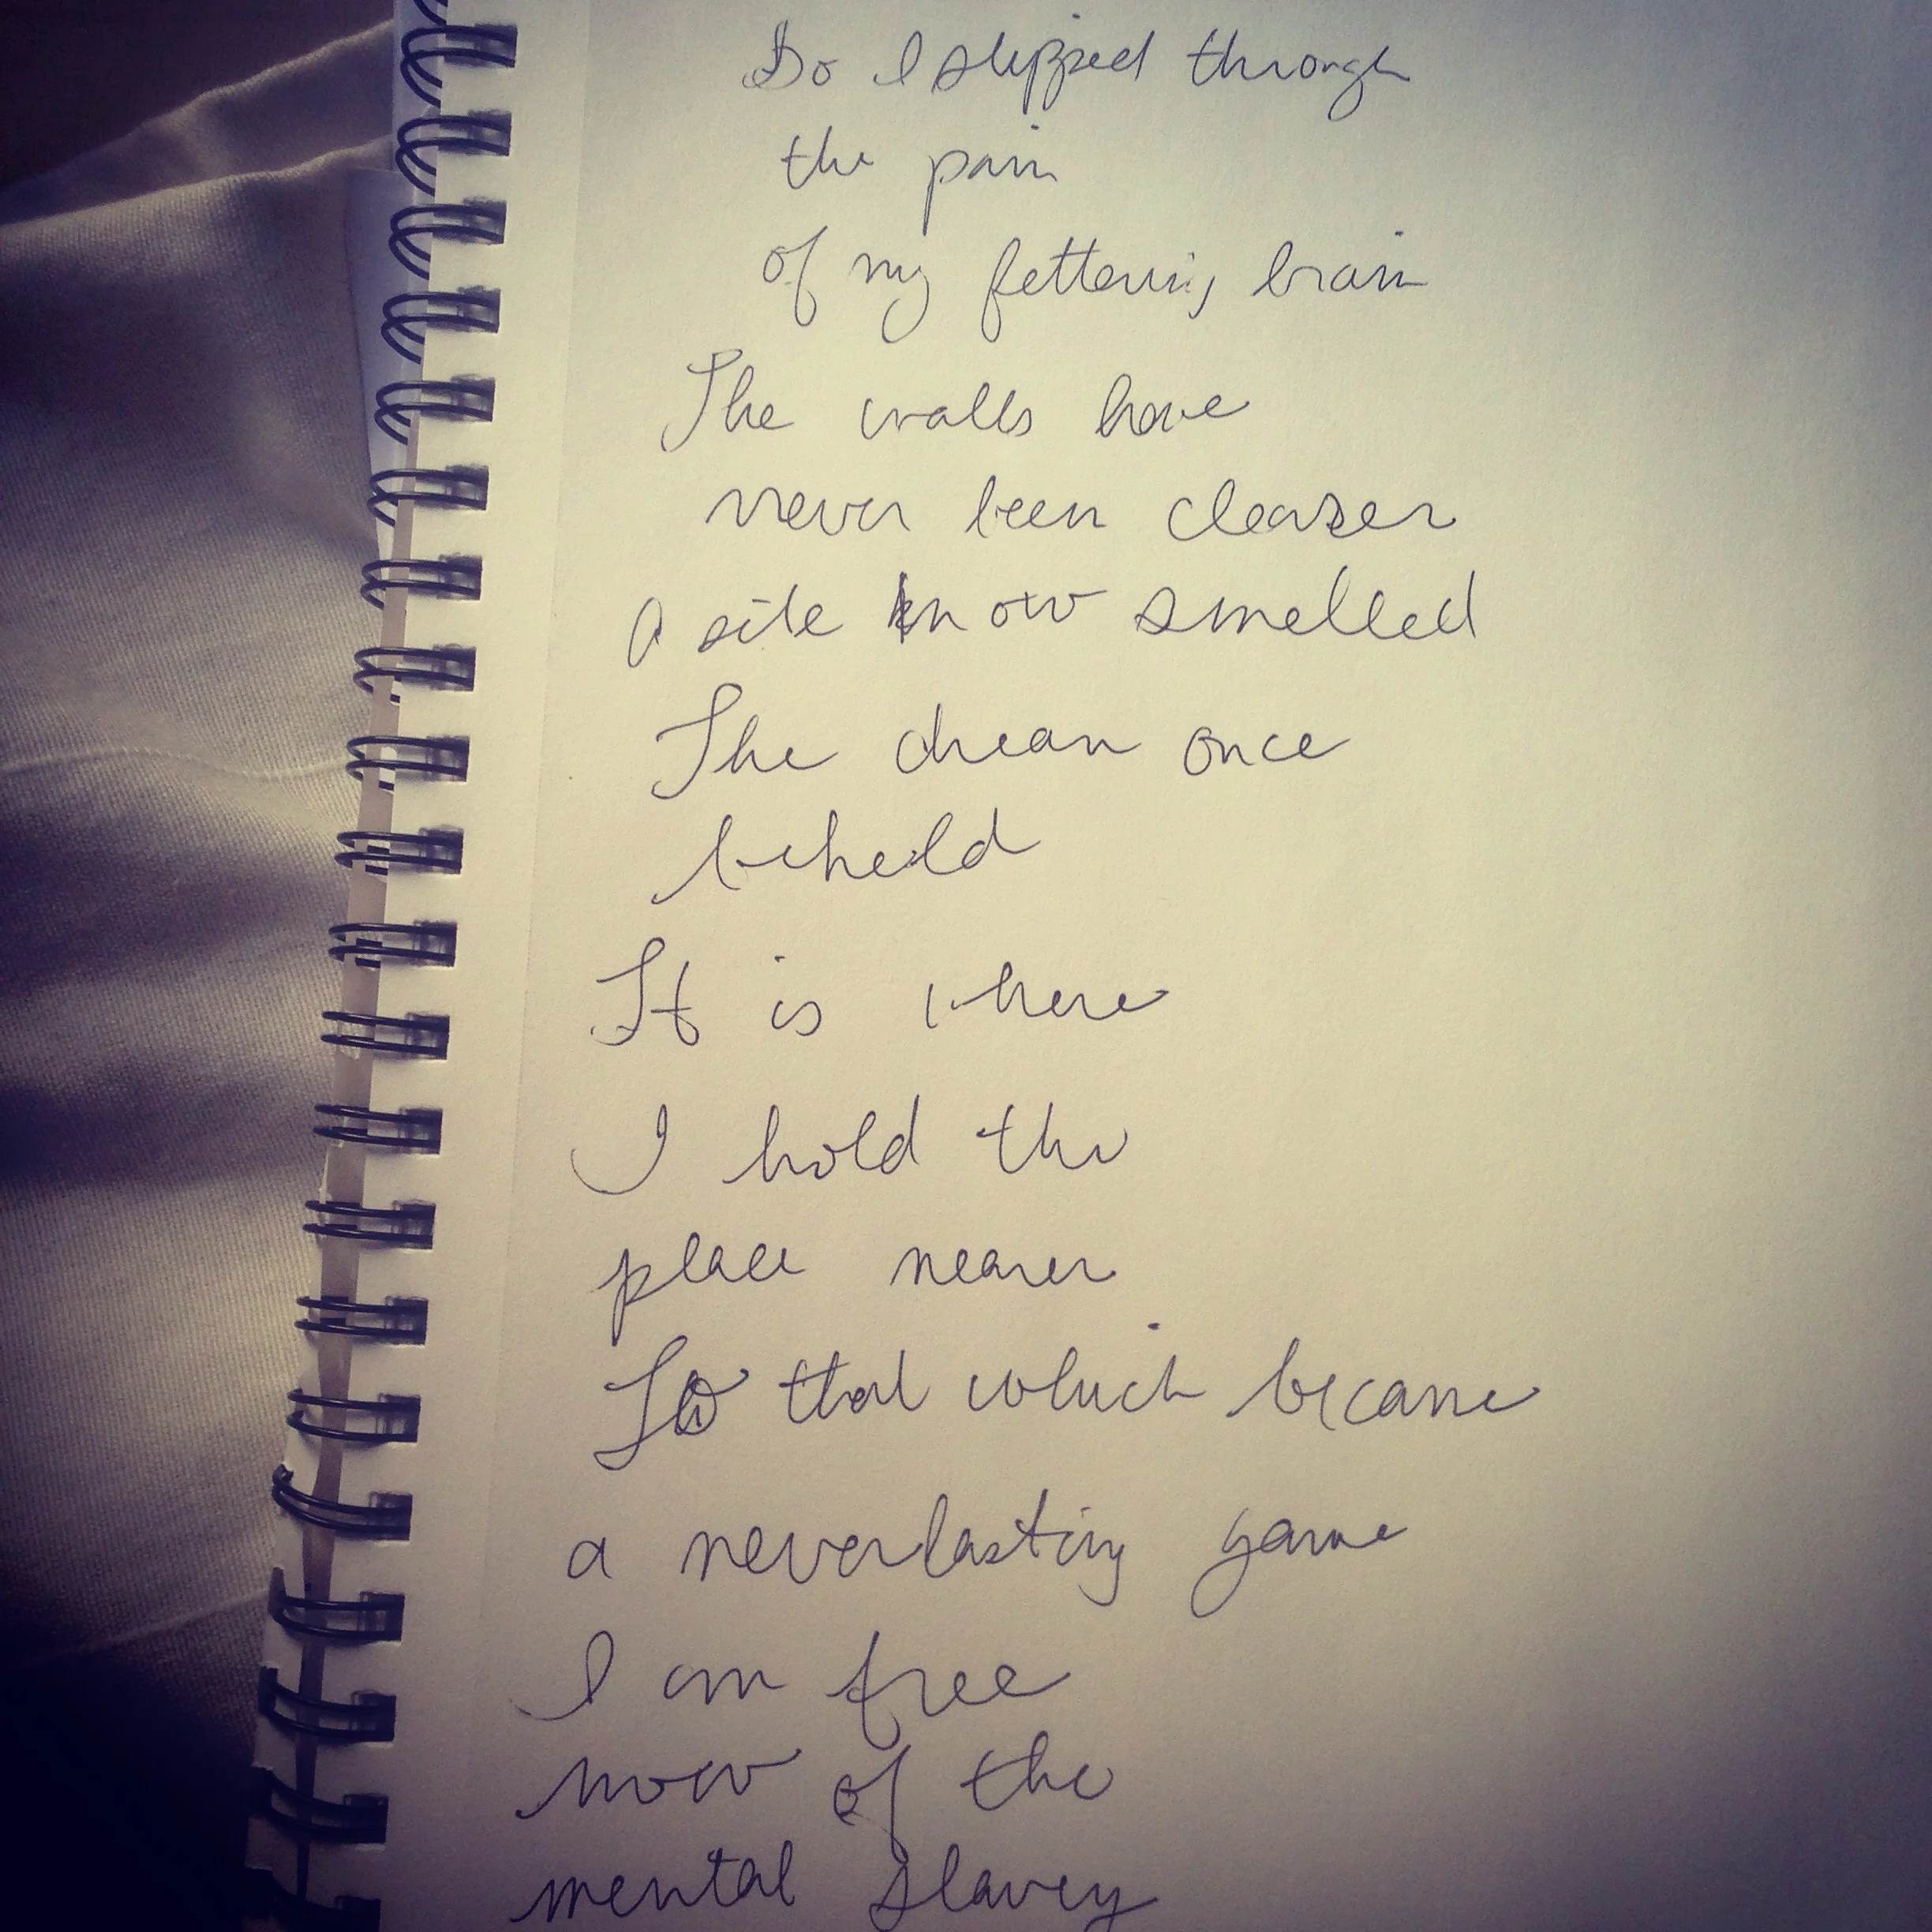 So I slipped through
the pain
of my fettering brain
The walls have
never been clearer
A site know smelled
The dream once
beheld
It is where
I hold the
place nearer
To that which became
a neverlasting game
I am free
now of the
mental slavey